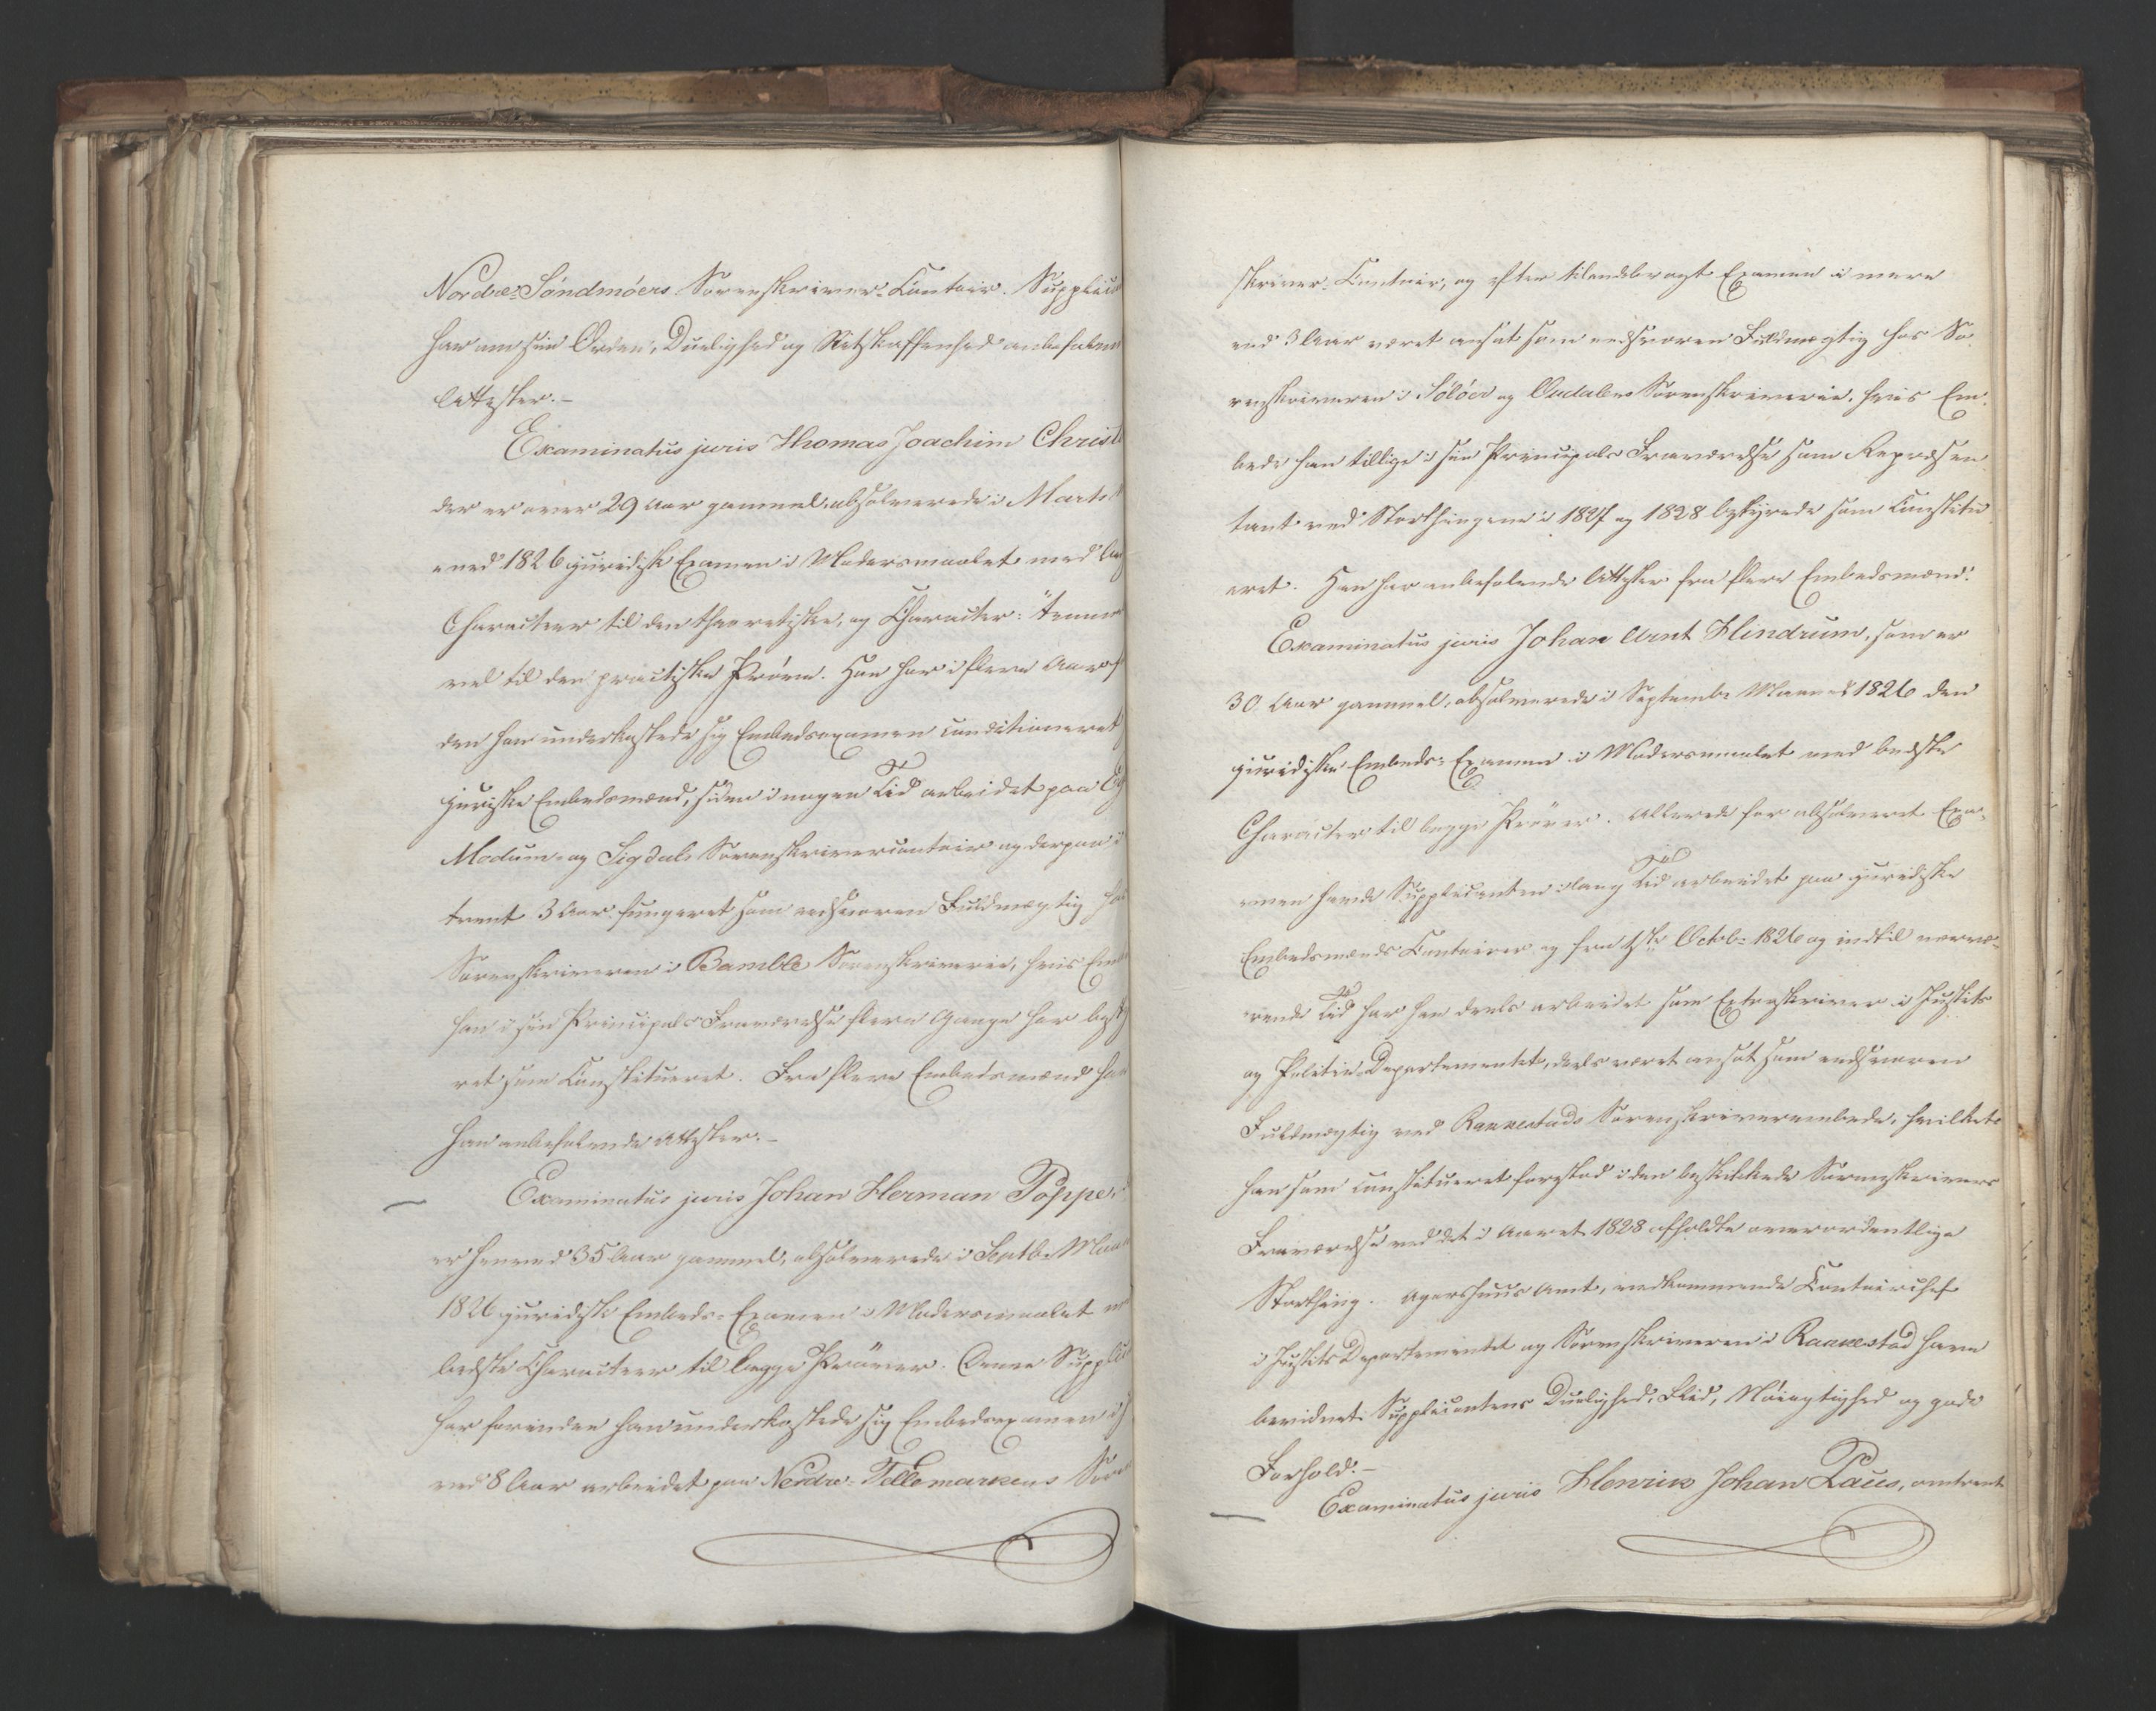 Nordre-Søndmøers Sorenskriver-Contoir. Supplic
har om sin Orden, Duelighed og Retskaffenhed anbefalen
Attester.-
Examinatus juris Thomas Joachim Christ
der er over 29 Aar gammel, absolverede i Marts
aned 1826 juridisk Examen i Modersmaalet med
Characteer til den theoretiske, og Character: "temme
vel til den practiske Prøve. Han har i flere Aar
den han underkastede sig Embedsexamen conditioneret
juriske Embedsmænd, siden i nogen Tid arbeidet paa
Modum- og Sigdals Sorenskrivercontoir og derpaa i
trent 3 Aar fungeret som edsvoren Fuldmægtig
Sorenskriveren i Bamble Sorenskriverie, hvis Em
han i sin Principals Fraværelse flere Gange har besty
ret som Constitueret. Fra flere Embedsmænd ha
han anbefalende Attester.-
Examinatus juris Johan Herman Poppe,
er henved 35 Aar gammel, absolverede i Septbr. Maan
1826 juridisk Embeds-Examen i Modersmaalet
bedste Characteer til begge Prøver. Denne Supplic
har forinden han underkastede sig Embedsexamen i
ved 8 Aar arbeidet paa Nordre-Tellemarkens Sor
skriver-Contoir, og efter tilendebragt Examen i mere
end 3 Aar været ansat som eedsvoren Fuldmægtig hos So-
renskriveren i Soløer og Oudalens Sorenskriverie, hvis Em-
bede han tillige i sin Principals Fraværelse som Repræsen-
tant ved Storthingene i 1827 og 1828 bestyrede som Constitu
eret. Han har anbefalende Attester fra flere Embedsmænd.
Examinatus juris Johan Arnt Hindrum, som er
30 Aar gammel, absolverede i Septembr Maaned 1826 den
juridiske Embeds-Examen i Modersmaalet med bedste
Character til begge Prøver. Allerede før absolveret Exa-
men havde Supplicanten i lang Tid arbeidet paa juridiske
Embedsmænds Contoirer og fra 1ste Octobr 1826 og indtil nærvæ-
rende Tid har han deels arbeidet som Extraskriver i Justits
og Politie-Departementet, deels været ansat som eedsvoren
Fuldmægtig ved Raakestads Sorenskriverembede, hvilket
han som constitueret forestod i den beskikkede Sorenskrivers
Fraværelse ved det i Aaret 1828 afholdte overordentlige
Storthing. Agershuus Amt, vedkommende Contoirchef
i Justits Departementet og Sorenskriveren i Raakestad have
bevidnet Supplicantens Duelighed, Flid, Nøiagtighed og gode
Forhold.-
Examinatus juris Henrik Johan Paus, omtrent